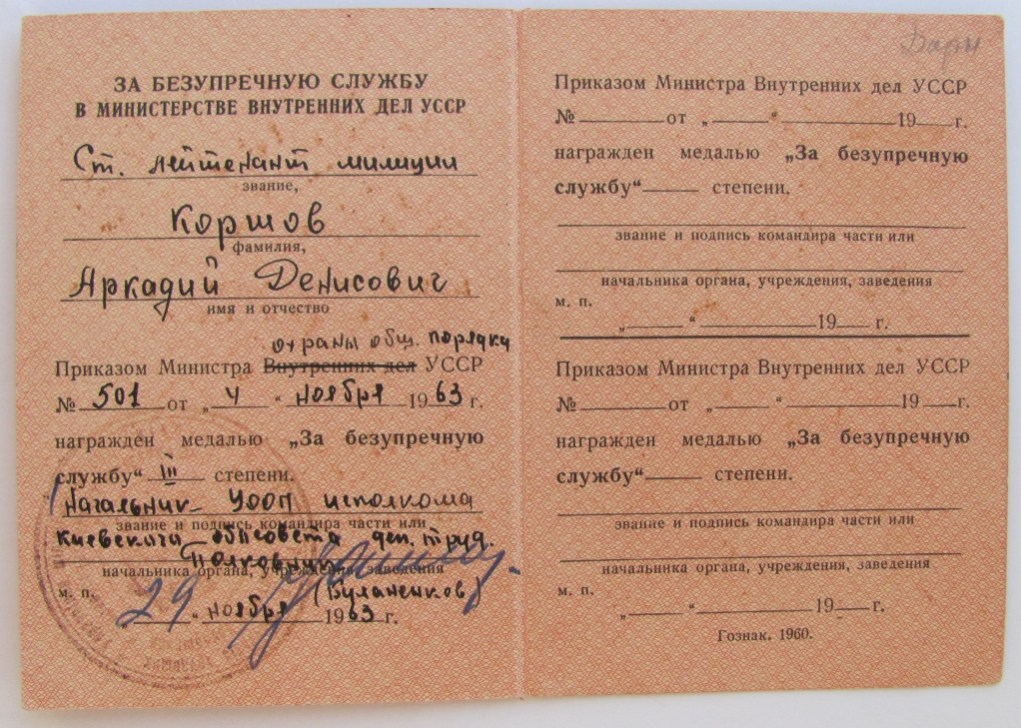 ЗА БЕЗУПРЕЧНУЮ СЛУЖБУ
В МИНИСТЕРСТВЕ ВНУТРЕННИХ ДЕЛ УССР
Ст. лейтенант милиции
звание,
Коршов
фамилия,
Аркадий Денисович
имя и отчество
охраны общ. порядка
Приказом Министра Внутренних дел УССР
№ 501 от „ 4 “ ноября 1963 г.
награжден медалью „За безупречную
службу“ III степени.
Начальник УООП исполкома
звание и подпись командира части или
Киевского облсовета деп. труд.
Полковник
начальника органа, учреждения, заведения
м. п.
(Буланенков)
„29“ ноября 1963 г.
Приказом Министра Внутренних дел УССР
№ от „ “ 19 г.
награжден медалью „За безупречную
службу“ степени.
звание и подпись командира части или
начальника органа, учреждения, заведения
м. п.
„ “ 19 г.
Приказом Министра Внутренних дел УССР
№ от „ “ 19 г.
награжден медалью „За безупречную
службу“ степени.
звание и подпись командира части или
начальника органа, учреждения, заведения
м. п.
„ “ 19 г.
Гознак. 1960.